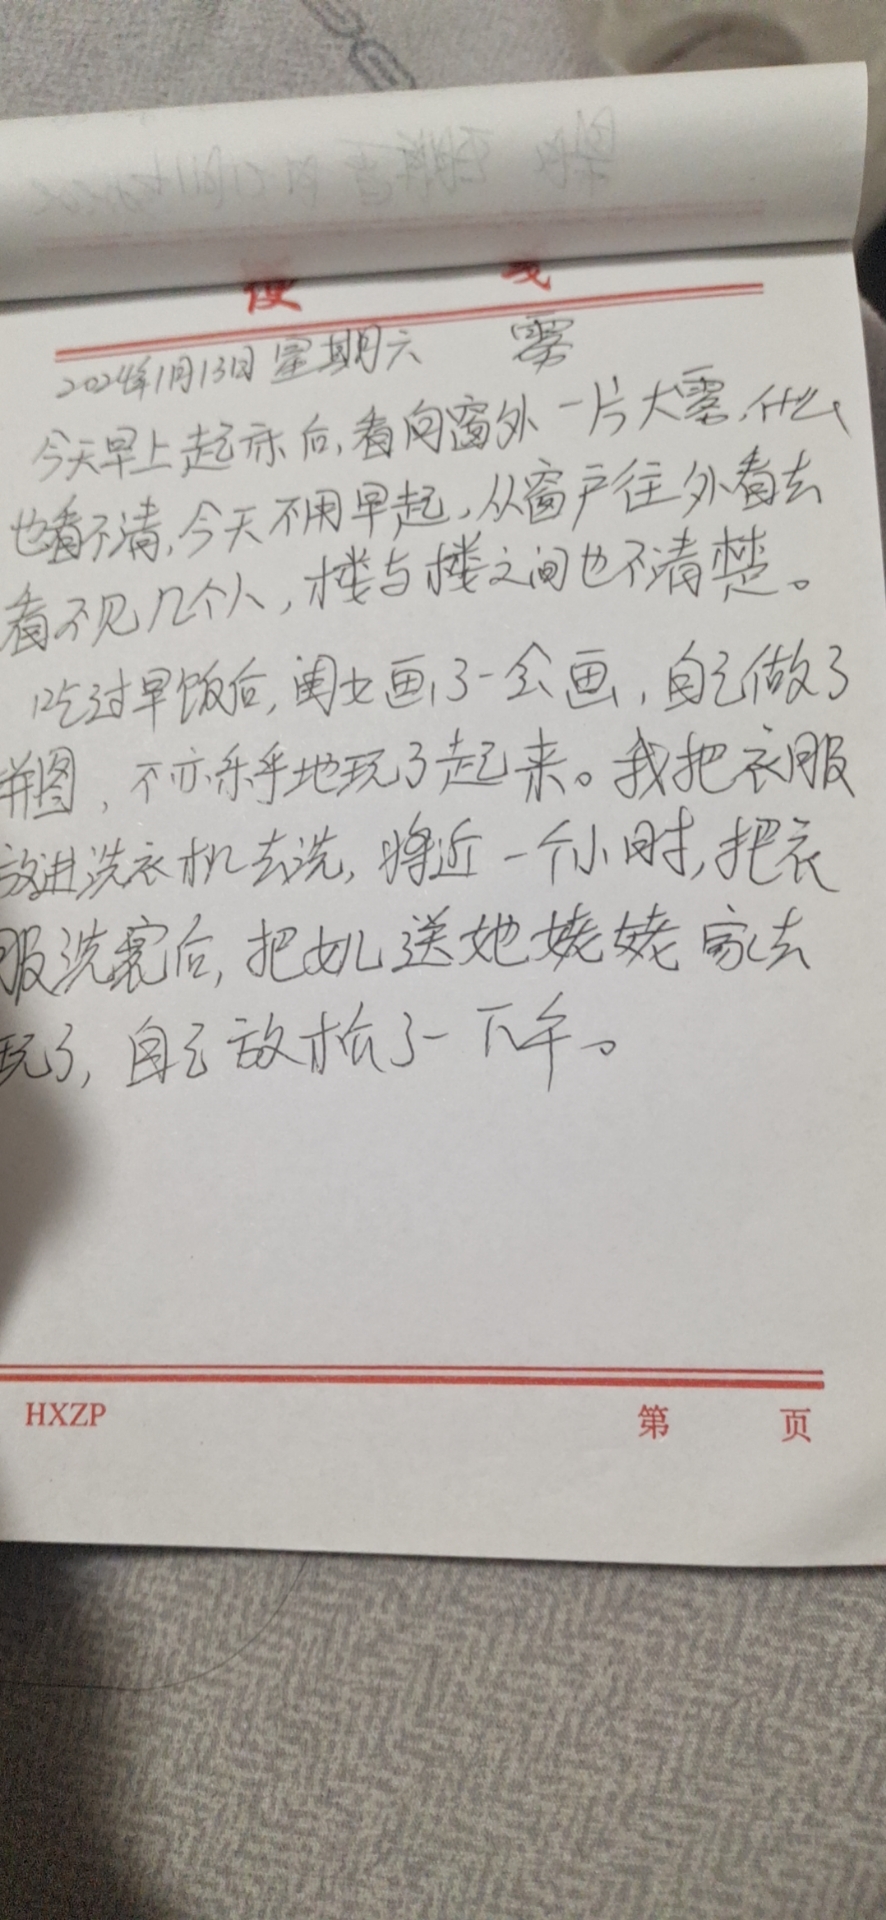 便 笺
2024年1月13日 星期六 雾
今天早上起床后,看向窗外一片大雾,什么
也看不清,今天不用早起,从窗户往外看去
看不见几个人,楼与楼之间也不清楚。
吃过早饭后,闺女画了一会画,自己做了
拼图,不亦乐乎地玩了起来。我把衣服
放进洗衣机去洗,将近一个小时,把衣
服洗完后,把女儿送她姥姥家去
玩了,自己放松了一下午。
HXZP 第 页